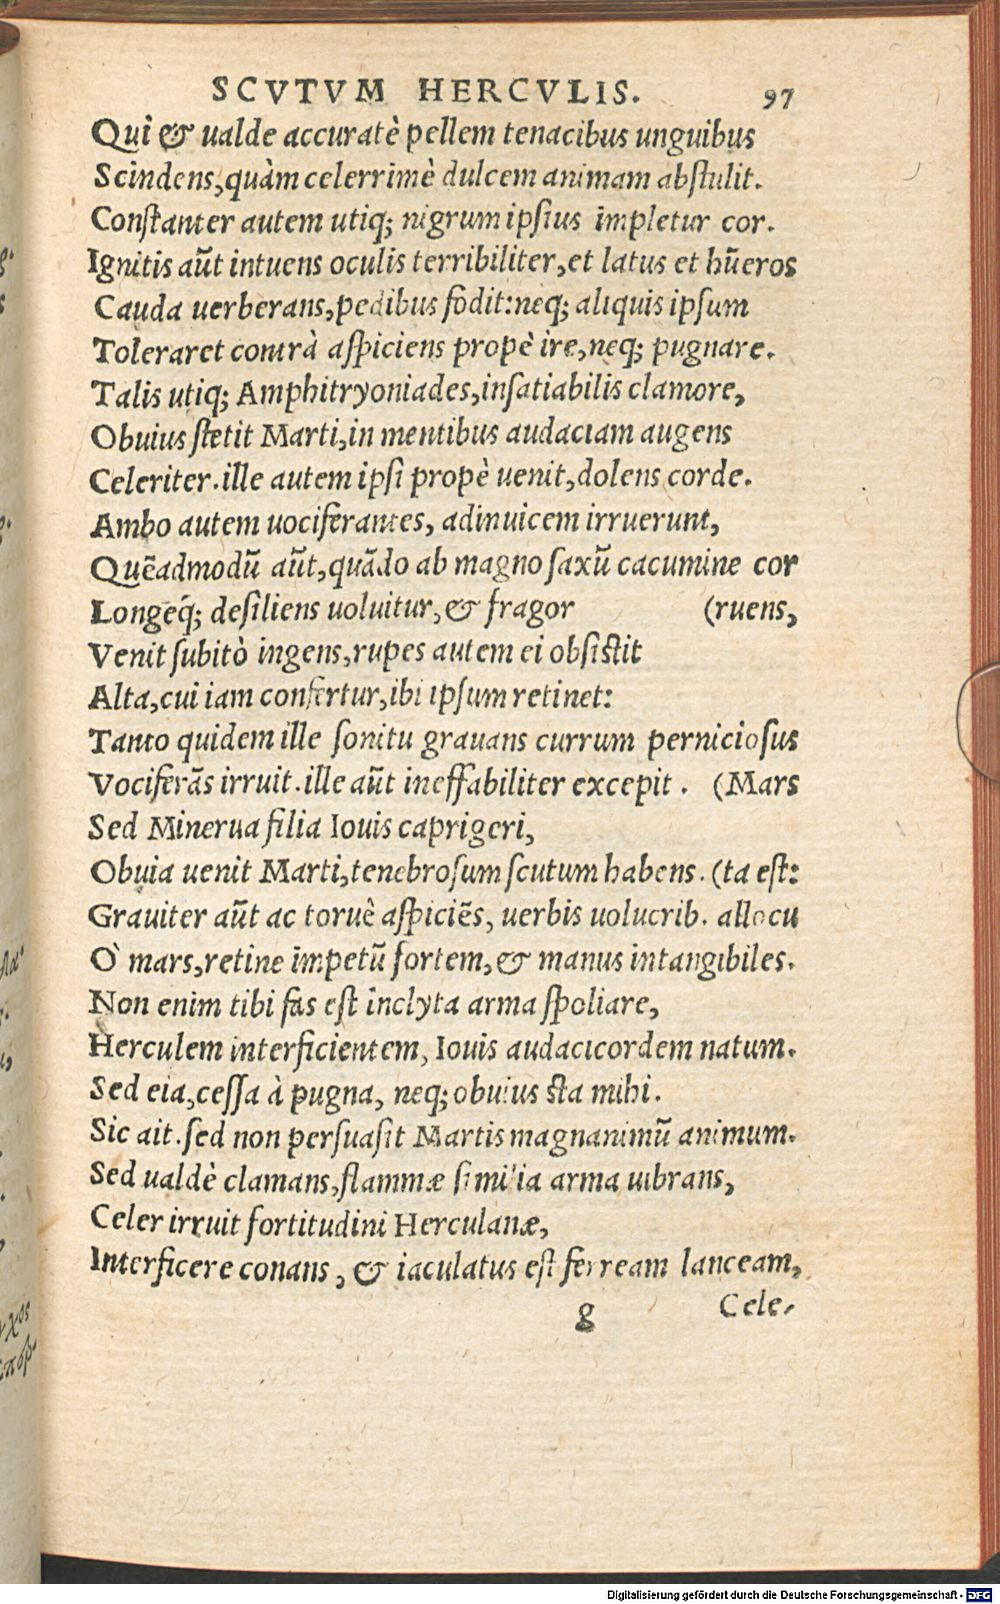 SCVTVM HERCVLIS. 97
Qui & ualde accuratè pellem tenacibus unguibus
Scindens, quàm celerrimè dulcem animam abstulit.
Constanter autem utiq; nigrum ipsius impletur cor.
Ignitis aũt intuens oculis terribiliter, et latus et hũeros
Cauda uerberans, pedibus fodit: neq; aliquis ipsum
Toleraret contrà aspiciens propè ire, neq; pugnare.
Talis utiq; Amphitryoniades, insatiabilis clamore,
Obuius stetit Marti, in mentibus audaciam augens
Celeriter. ille autem ipsi propè uenit, dolens corde.
Ambo autem uociferantes, adinuicem irruerunt,
Quẽadmodũ aũt, quãdo ab magno saxũ cacumine cor
Longeq́; desiliens uoluitur, & fragor (ruens,
Venit subitò ingens, rupes autem ei obsistit
Alta, cui iam confertur, ibi ipsum retinet:
Tanto quidem ille sonitu grauans currum perniciosus
Vociferãs irruit. ille aũt ineffabiliter excepit. (Mars
Sed Minerua filia Iouis caprigeri,
Obuia uenit Marti, tenebrosum scutum habens. (ta est:
Grauiter aũt ac toruè aspiciẽs, uerbis uolucrib. allocu
Ò mars, retine impetũ fortem, & manus intangibiles.
Non enim tibi fas est inclyta arma spoliare,
Herculem interficientem, Iouis audacicordem natum.
Sed eia, cessa à pugna, neq; obuius sta mihi.
Sic ait. sed non persuasit Martis magnanimũ animum.
Sed ualdè clamans, flammæ similia arma uibrans,
Celer irruit fortitudini Herculanæ,
Interficere conans, & iaculatus est ferream lanceam,
g Cele-
Digitalisierung gefördert durch die Deutsche Forschungsgemeinschaft - DFG